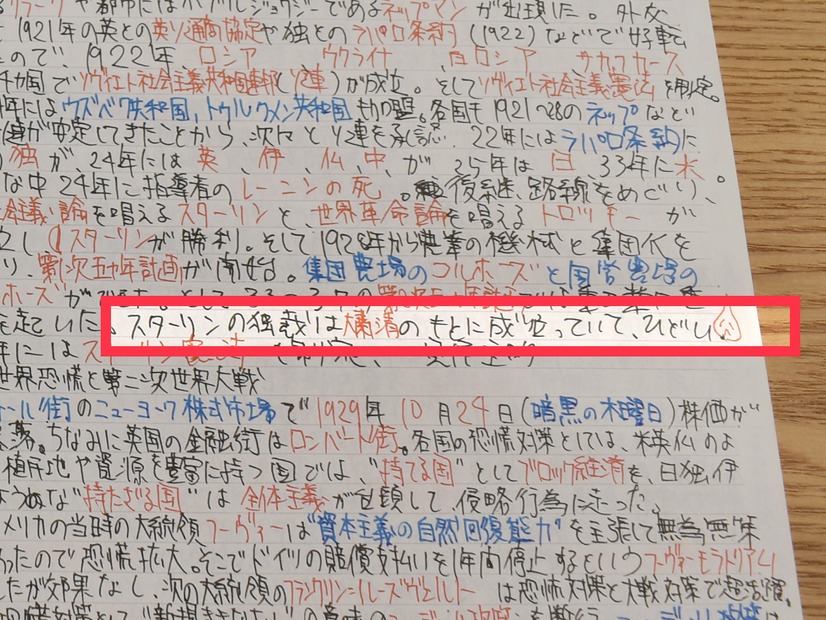 や都市にはブルジョワジーであるネップマンが出現した。外交
1921年の英との英ソ通商協定や独とのラパロ条約(1922)などで好転
ので、1922年 ロシア ウクライナ 白ロシア ザカフカース
4カ国でソヴィエト社会主義共和国連邦(ソ連)が成立。そしてソヴィエト社会主義憲法を制定。
年にはウズベク共和国,トゥルクメン共和国も加盟。各国も1921~28のネップなど
安定してきたことから、次々とソ連を承認。22年にはラパロ条約に
独が、24年には英、伊、仏、中、が、25年は日 33年に米
な中24年に指導者のレーニンの死。後継、路線をめぐり、
会主義論を唱えるスターリンと、世界革命論を唱えるトロツキーが
し スターリンが勝利。そして1928年から農業の機械と集団化を
り、第一次五カ年計画が開始。集団農場のコルホーズと国営農場の
ホーズができた。
を起いた。スターリンの独裁は粛清のもとに成り立っていて、ひどい
年にはスターリン憲法を制定、
世界恐慌と第二次世界大戦
ォール街のニューヨーク株式市場で1929年10月24日(暗黒の木曜日)株価が
落。ちなみに英国の金融街はロンバード街。各国の恐慌対策としては、米英仏のよ
植民地や資源を豊富に持つ国では、"持てる国"としてブロック経済を、日独伊
ような"持たざる国"は全体主義が台頭して、侵略行為に走った。
メリカの当時の大統領フーヴァーは"資本主義の自然回復能力"を主張して無為無策
ったので恐慌拡大。そこでドイツの賠償支払いを1年間停止するというフーヴァーモラトリアム
したが効果なし、次の大統領のフランクリン=ルーズヴェルトは恐慌対策と大戦対策で超活躍。